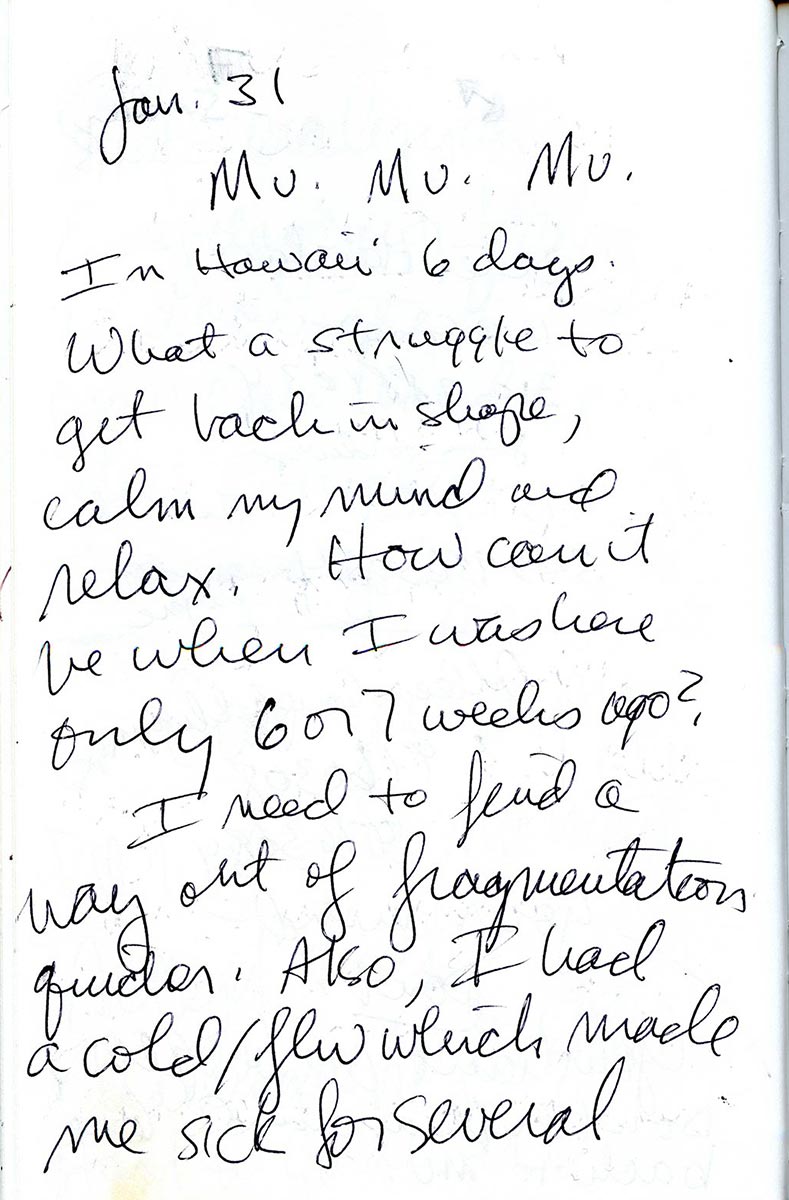 Jan. 31
Mu. Mu. Mu.
In Hawaii 6 days.
What a struggle to
get back in shape,
calm my mind and
relax. How can it
be when I was here
only 6 or 7 weeks ago?
I need to find a
way out of fragmentation
quicker. Also, I had
a cold/flu which made
me sick for several